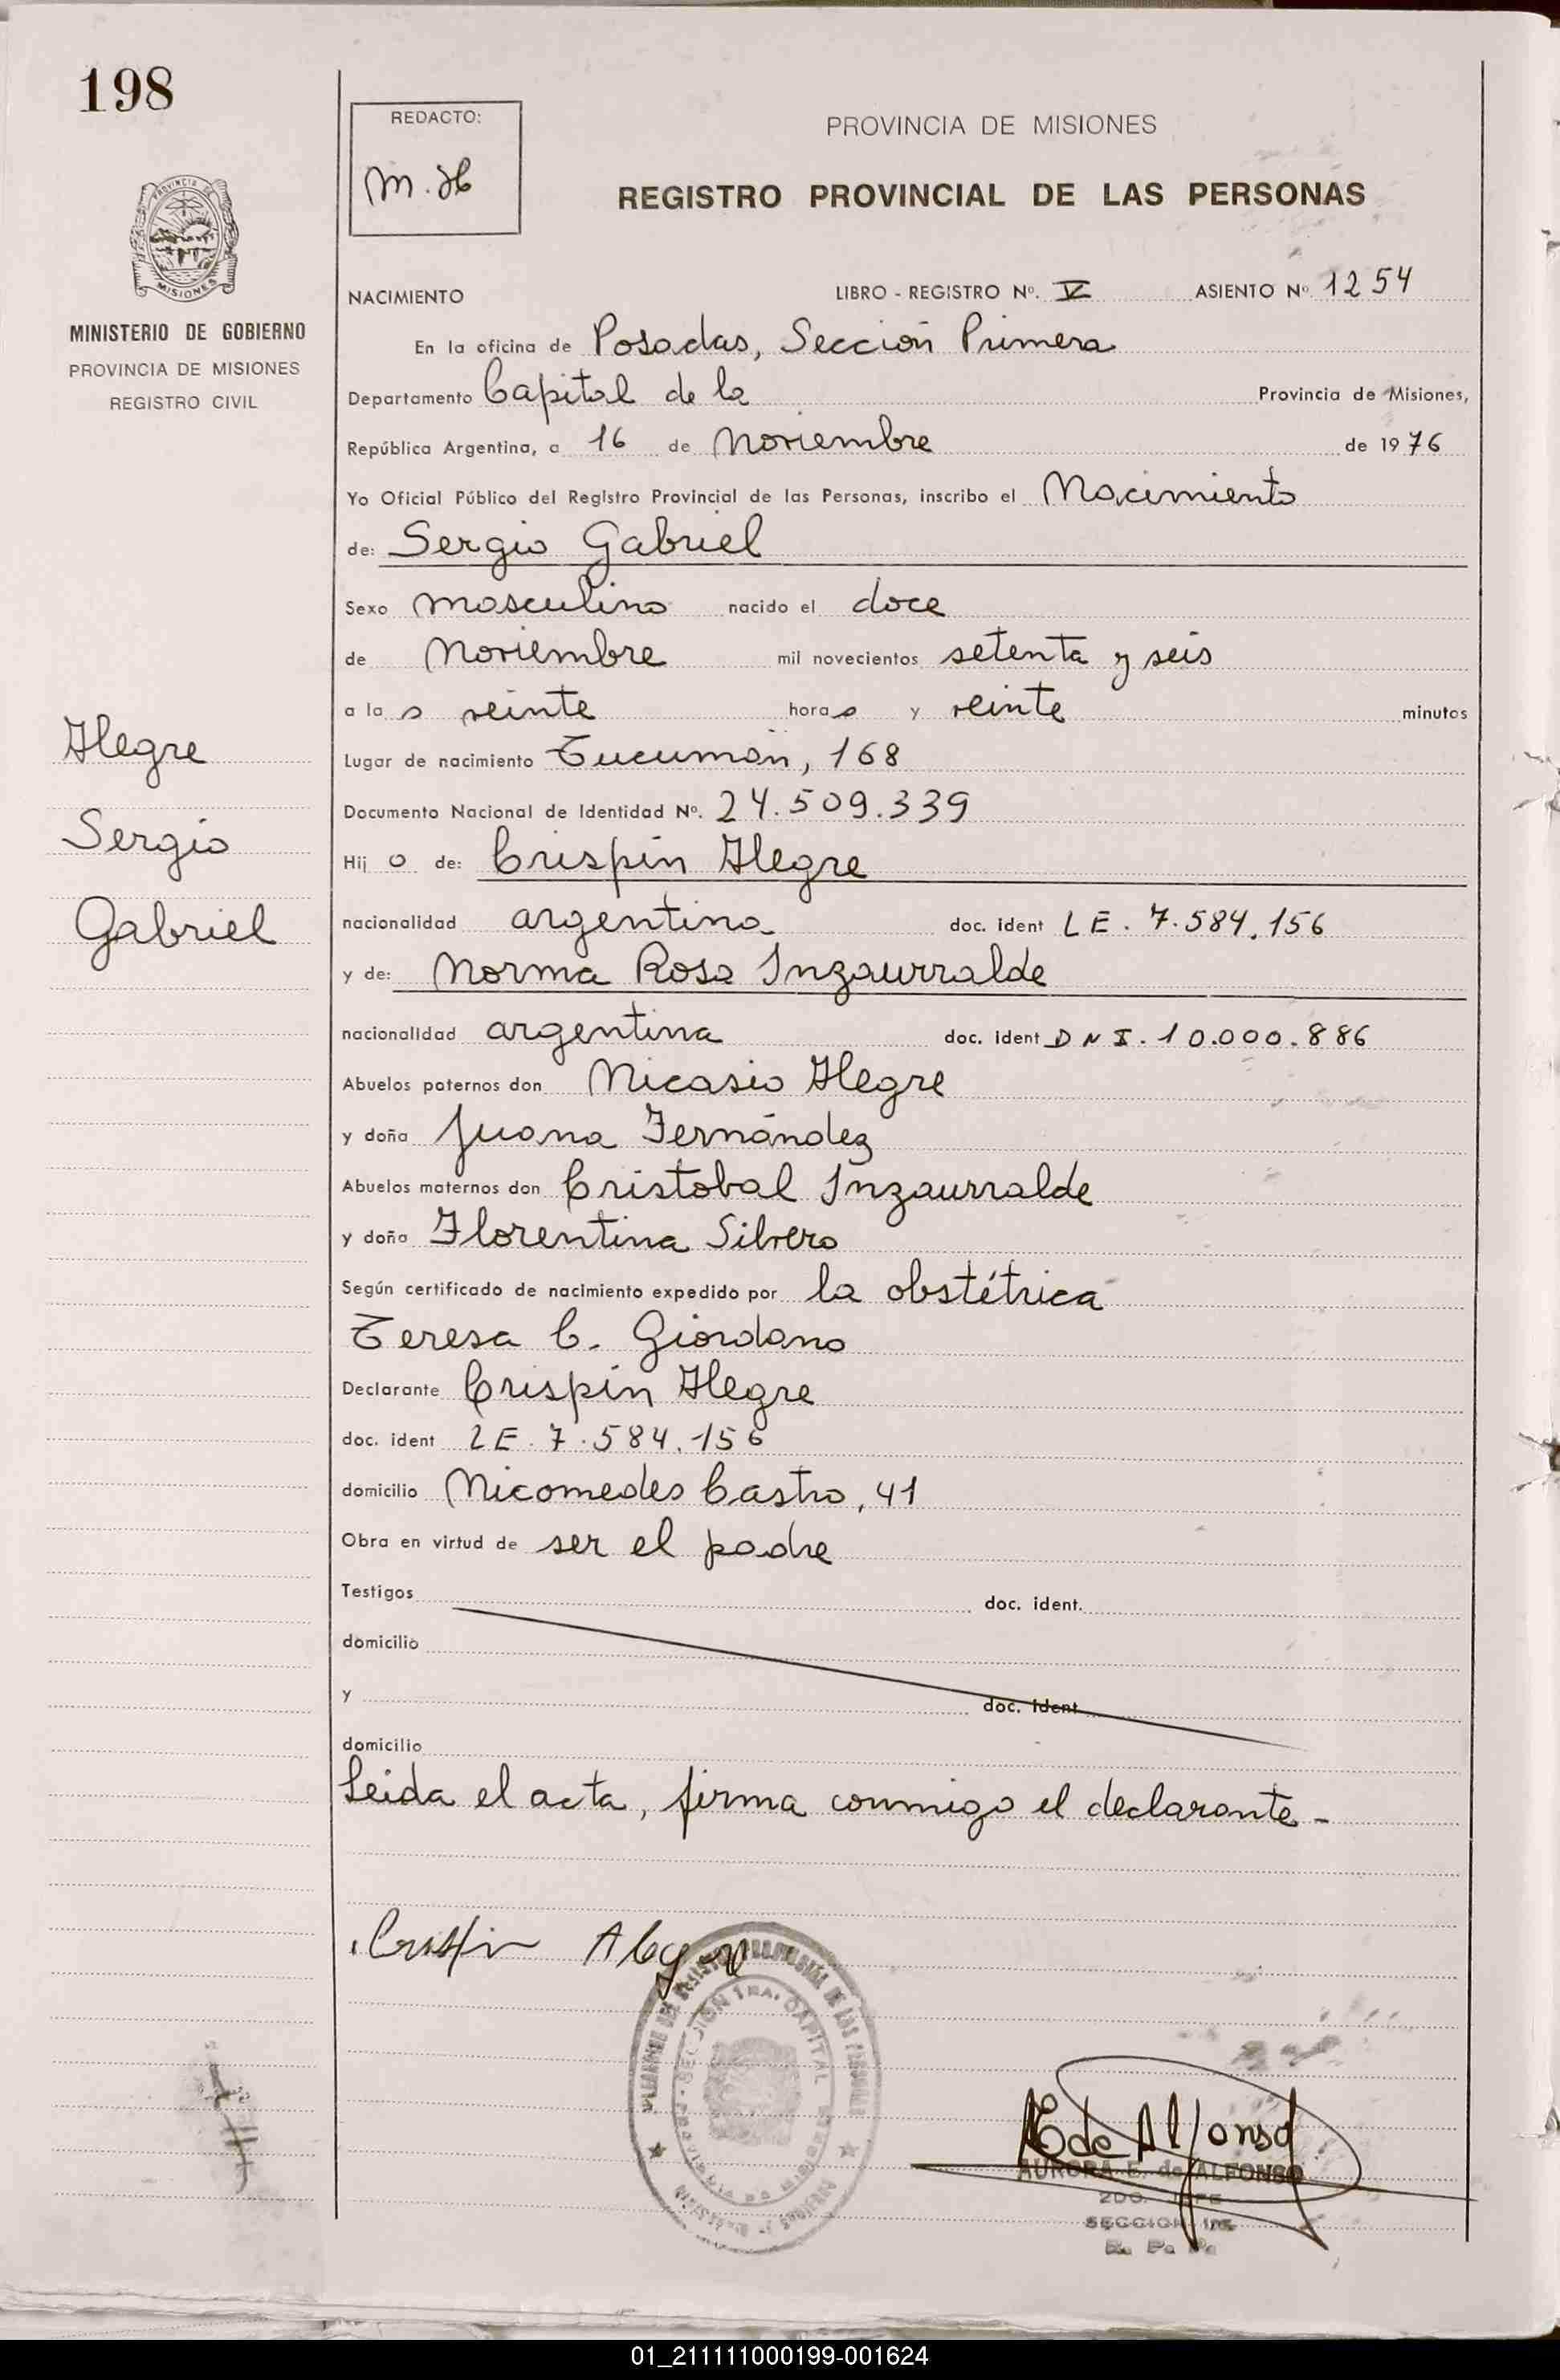 198
PROVINCIA DE
MISIONES
MINISTERIO DE GOBIERNO
PROVINCIA DE MISIONES
REGISTRO CIVIL
Alegre
Sergio
Gabriel
REDACTO:
PROVINCIA DE MISIONES
REGISTRO PROVINCIAL DE LAS PERSONAS
NACIMIENTO LIBRO - REGISTRO Nº. V ASIENTO Nº 1254
En la oficina de Posadas, Sección Primera
Departamento Capital de la Provincia de Misiones,
República Argentina, a 16 de Noviembre de 1976
Yo Oficial Público del Registro Provincial de las Personas, inscribo el Nacimiento
de: Sergio Gabriel
Sexo masculino nacido el doce
de Noviembre mil novecientos setenta y seis
a las veinte horas y veinte minutos
Lugar de nacimiento Tucumán, 168
Documento Nacional de Identidad Nº. 24.509.339
Hijo de: Crispín Alegre
nacionalidad argentina doc. ident LE. 7.584.156
y de: Norma Rosa Inzaurralde
nacionalidad argentina doc. ident DNI. 10.000.886
Abuelos paternos don Nicasio Alegre
y doña Juana Fernández
Abuelos maternos don Cristobal Inzaurralde
y doña Florentina Silvero
Según certificado de nacimiento expedido por la obstétrica
Teresa C. Giordano
Declarante Crispín Alegre
doc. ident LE. 7.584.156
domicilio Nicomedes Castro, 41
Obra en virtud de ser el padre
Testigos doc. ident.
domicilio
y doc. ident
domicilio
Leida el acta, firma conmigo el declarante-
Crispin Alegre
SECCION 1RA. CAPITAL
E de Alfonso
AURORA E. de ALFONSO
2DO. JEFE
SECCION 1ra.
R. P. P.
01_211111000199-001624